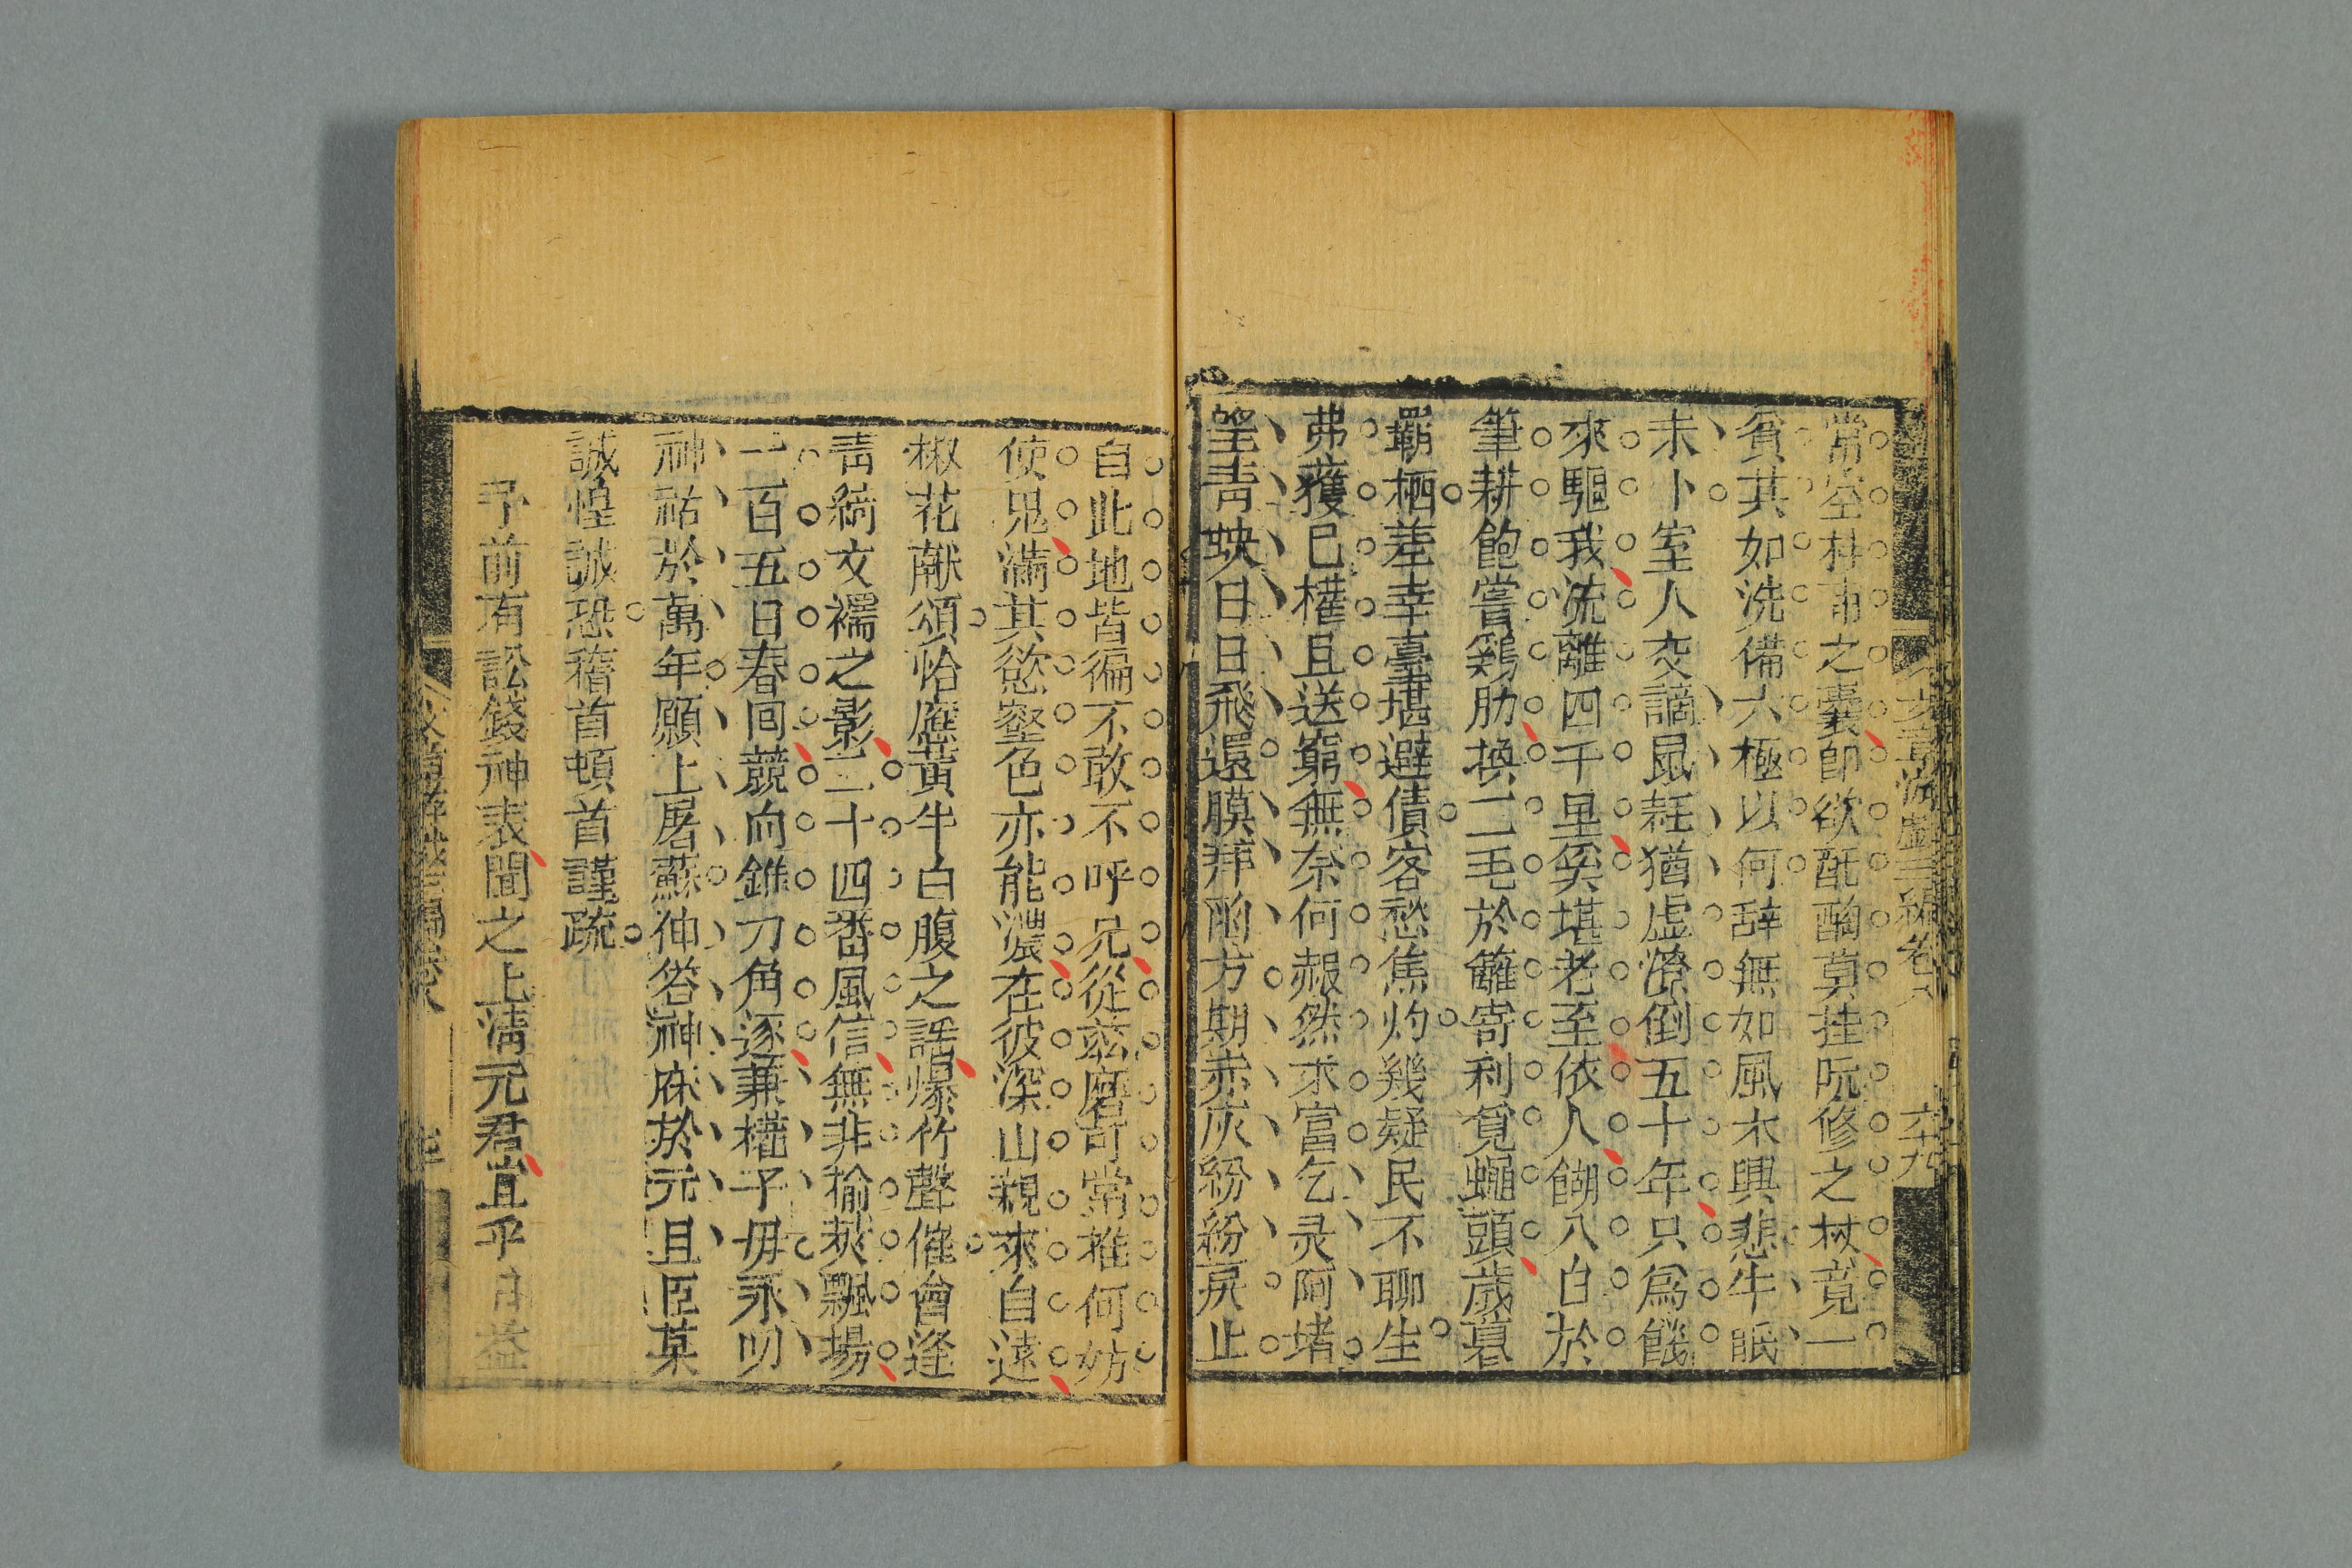 文章游戲三編卷八
六十九
常空杖甫之囊卽欲酕酶莫挂阮修之杖竟一
貧其如洗備六極以何辞無如風木興悲牛眠
未卜室人交謫鼠耗猶虛潦倒五十年只爲饑
來驅我流離四千里矣堪老至依人餬八口於
筆耕飽嘗鷄肋換二毛於籬寄利覓蠅頭歲暮
羈栖差幸臺堪避債客愁焦灼幾疑民不聊生
弗獲已權且送窮無奈何赧然求富乞灵阿堵
望青蚨日日飛還膜拜酧方期赤灰紛紛戾止
自此地皆徧不敢不呼兄從茲磨可常推何妨
使鬼滿其慾壑色亦能濃在彼深山親來自遠
椒花献頌恰應黃牛白腹之謠爆竹聲催會逢
靑綺文襦之影二十四番風信無非揄莢飄場
一百五日春囘競向錐刀角逐兼權子毋永叨
神祜於萬年願上屠蘇仰答神庥於元旦臣某
誠惶誠恐稽首頓首謹疏
予前有訟錢神表聞之上清元君豈乎日益